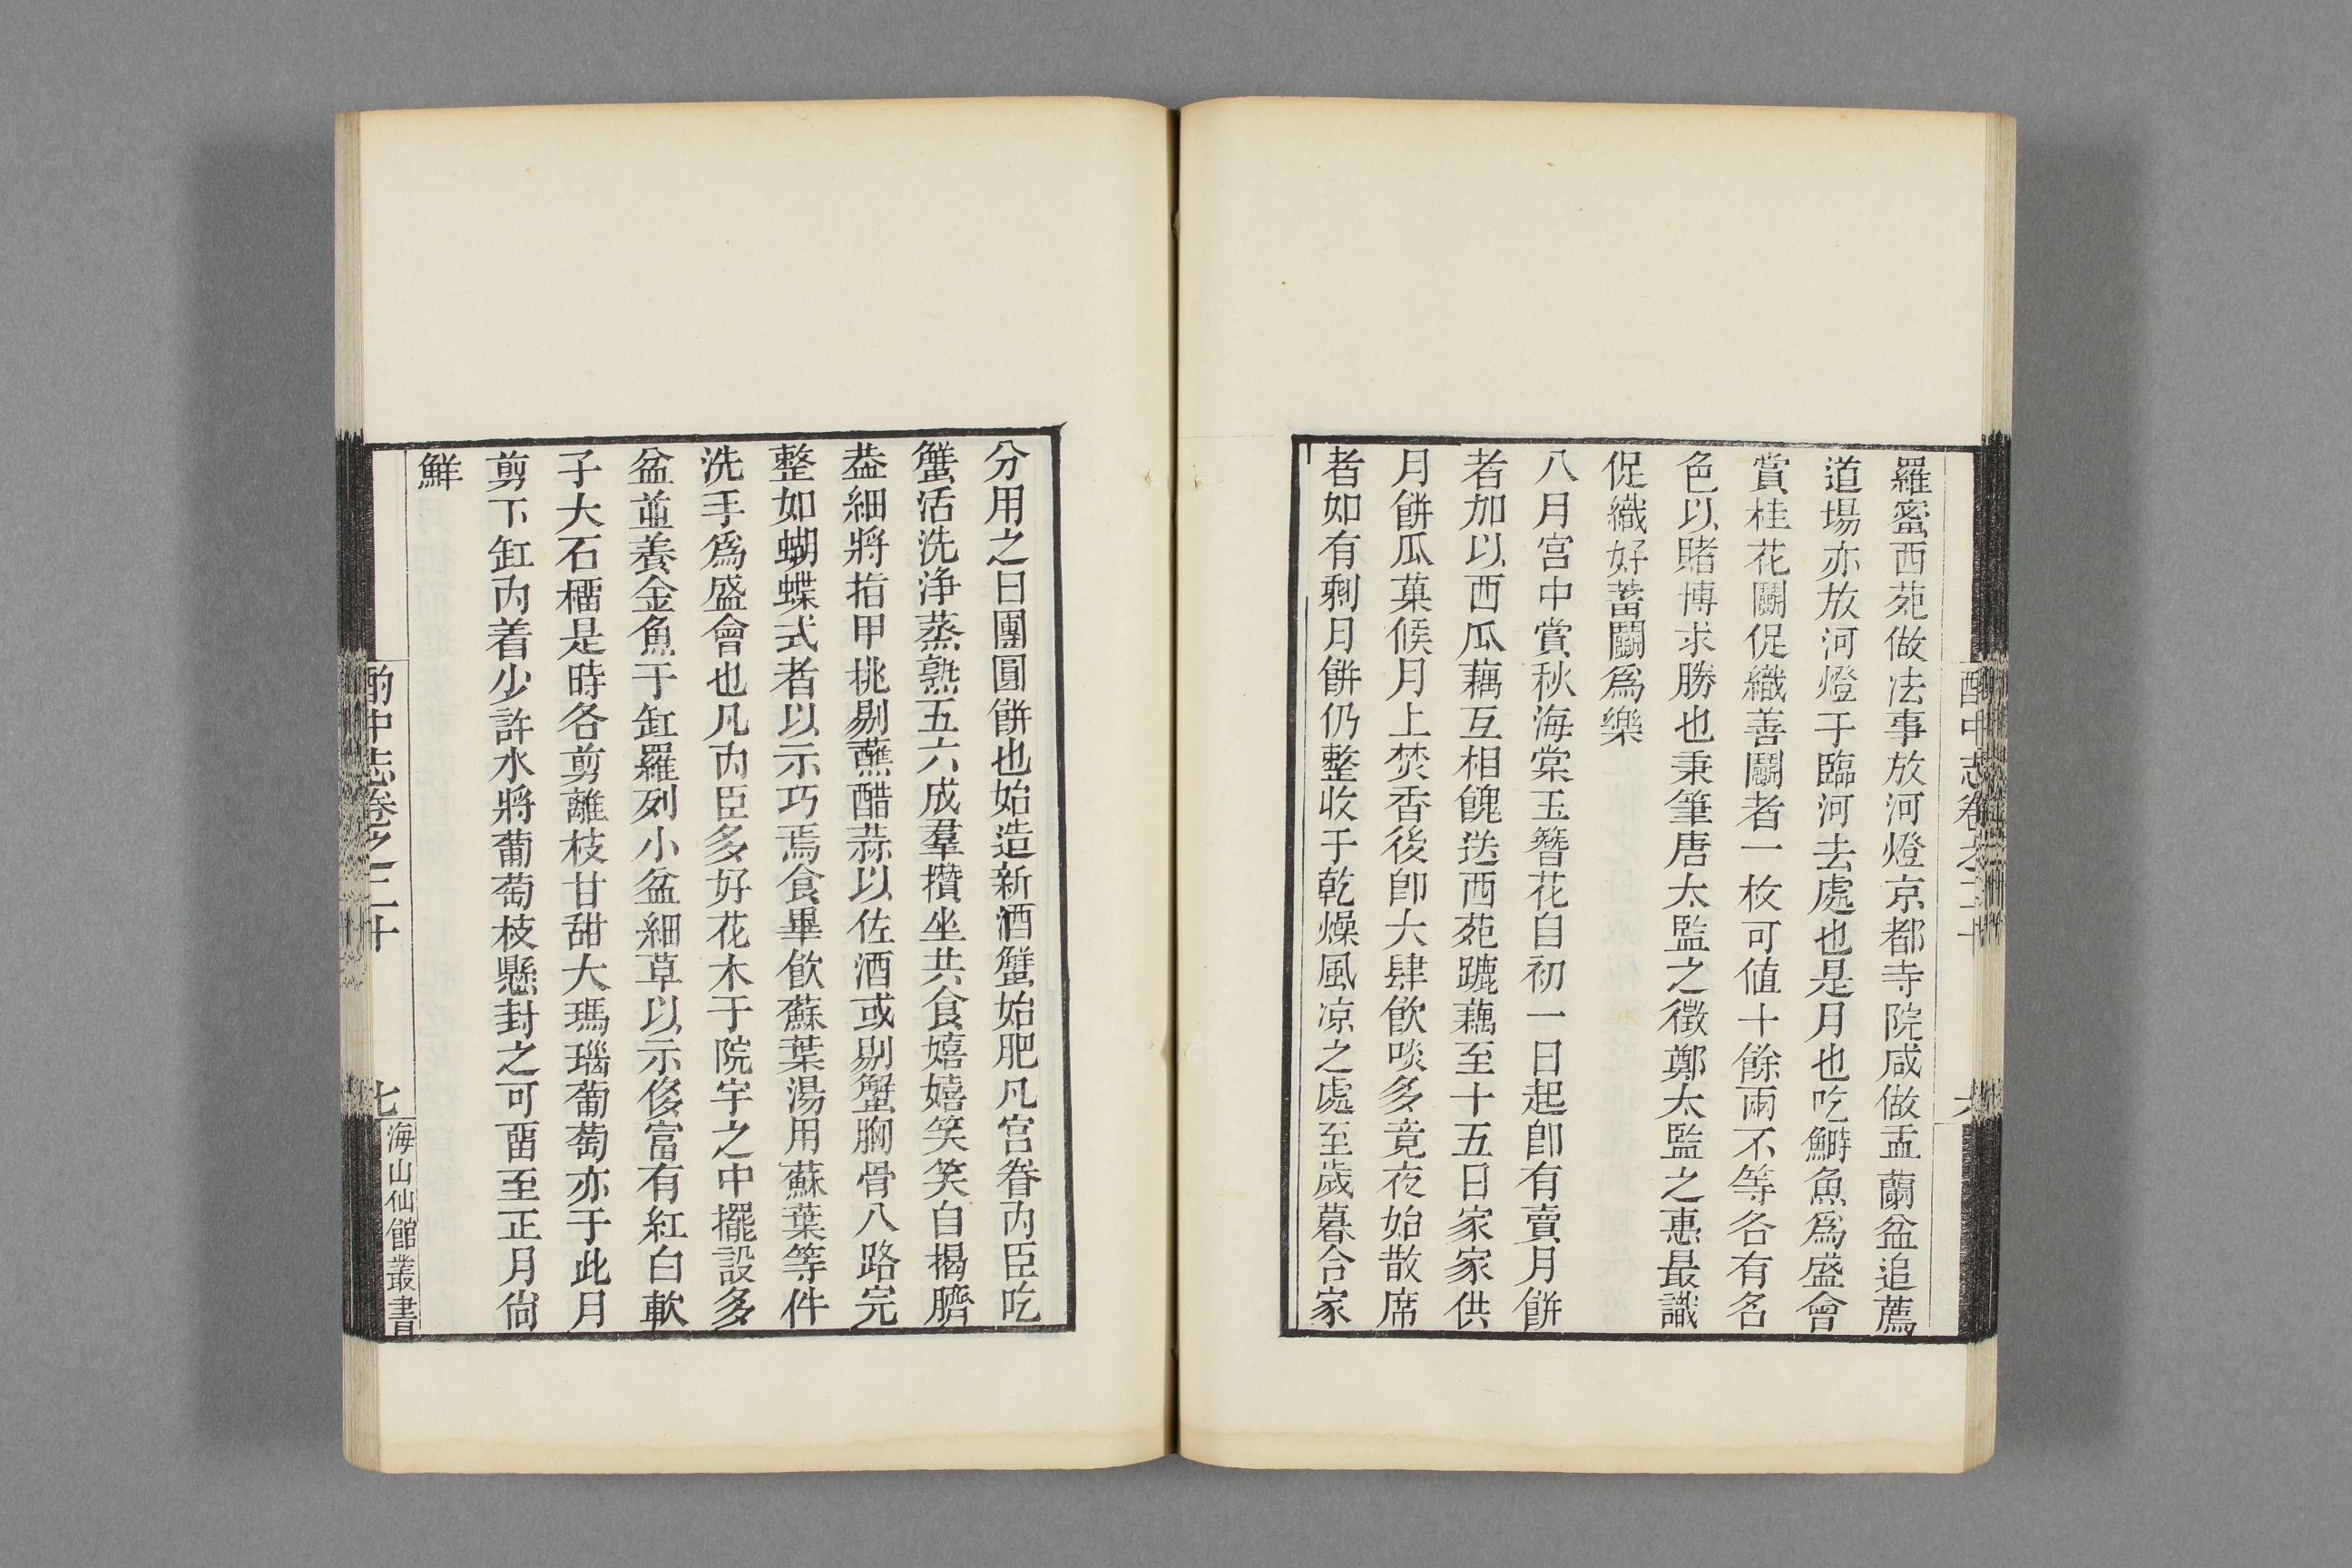 酌中志卷之二十
六
羅蜜西苑做法事放河燈京都寺院咸做盂蘭盆追薦
道場亦放河燈于臨河去處也是月也吃鰣魚爲盛會
賞桂花鬬促織善鬬者一枚可値十餘兩不等各有名
色以賭博求勝也秉筆唐太監之徵鄭太監之惠最識
促織好蓄鬬爲樂
八月宮中賞秋海棠玉簪花自初一日起卽有賣月餅
者加以西瓜藕互相餽送西苑躧藕至十五日家家供
月餅瓜菓候月上焚香後卽大肆飮啖多竟夜始散席
者如有剩月餅仍整收于乾燥風凉之處至歲暮合家
分用之曰團圓餅也始造新酒蟹始肥凡宮眷內臣吃
蟹活洗淨蒸熟五六成羣攢坐共食嬉嬉笑笑自揭臍
葢細將指甲挑剔蘸醋蒜以佐酒或剔蟹胸骨八路完
整如蝴蝶式者以示巧焉食畢飮蘇葉湯用蘇葉等件
洗手爲盛會也凡內臣多好花木于院宇之中擺設多
盆並養金魚于缸羅列小盆細草以示侈富有紅白軟
子大石橊是時各剪離枝甘甜大瑪瑙葡萄亦于此月
剪下缸內着少許水將葡萄枝懸封之可畱至正月尙
鮮
酌中志卷之二十
七
海山仙館叢書